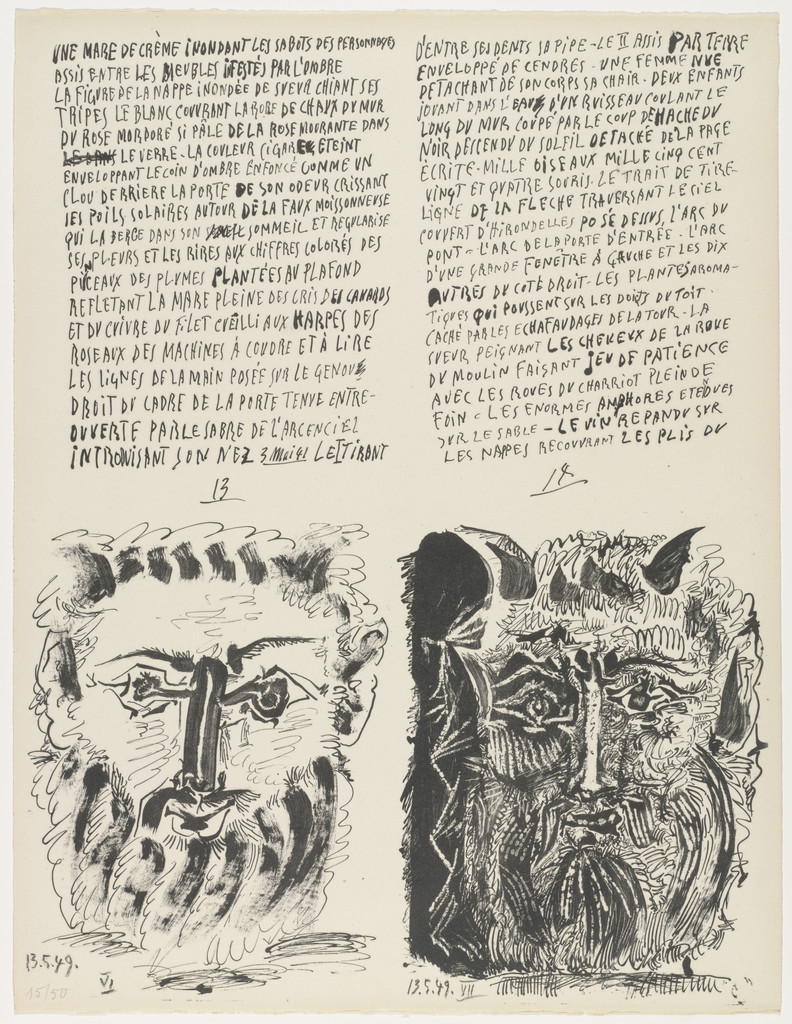 UNE MARE DE CRÈME INONDANT LES SABOTS DES PERSONNAGES
ASSIS ENTRE LES MEUBLES IFESTÉS PAR L'OMBRE
LA FIGURE DE LA NAPPE INONDÉE DE SUEUR CHIANT SES
TRIPES LE BLANC COUVRANT LA ROBE DE CHAUX DU MUR
DU ROSE MORDORÉ SI PÂLE DE LA ROSE MOURANTE DANS
LE VERRE - LA COULEUR CIGARE ETEINT
ENVELOPPANT LE COIN D'OMBRE ENFONCÉ COMME UN
CLOU DERRIERE LA PORTE DE SON ODEUR CRISSANT
SES POILS SOLAIRES AUTOUR DE LA FAUX MOISSONNEUSE
QUI LA BERCE DANS SON SOMMEIL ET REGULARISE
SES PLEURS ET LES RIRES AUX CHIFFRES COLORÉS DES
PUCEAUX DES PLUMES PLANTÉES AU PLAFOND
REFLETANT LA MARE PLEINE DES CRIS DES CANARDS
ET DU CUIVRE DU FILET CUEILLI AUX HARPES DES
ROSEAUX DES MACHINES À COUDRE ET À LIRE
LES LIGNES DE LA MAIN POSÉE SUR LE GENOU
DROIT DU CADRE DE LA PORTE TENUE ENTRE-
OUVERTE PAR LE SABRE DE L'ARCENCIEL
INTRODUISANT SON NEZ 3 MAI 41 LE I TIRANT
13
D'ENTRE SES DENTS SA PIPE - LE II ASSIS PAR TERRE
ENVELOPPÉ DE CENDRES - UNE FEMME NUE
DETACHANT DE SON CORPS SA CHAIR - DEUX ENFANTS
JOUANT DANS L'EAU D'UN RUISSEAU COULANT LE
LONG DU MUR COUPÉ PAR LE COUP DE HACHE DU
NOIR DESCENDU DU SOLEIL DETACHÉ DE LA PAGE
ÉCRITE - MILLE OISEAUX MILLE CINQ CENT
VINGT ET QUATRE SOURIS. LE TRAIT DE TIRE-
LIGNE DE LA FLECHE TRAVERSANT LE CIEL
COUVERT D'HIRONDELLES POSÉ DESSUS, L'ARC DU
PONT - L'ARC DE LA PORTE D'ENTRÉE - L'ARC
D'UNE GRANDE FENÊTRE À GAUCHE ET LES DIX
AUTRES DU COTÉ DROIT - LES PLANTES AROMA-
TIQUES QUI POUSSENT SUR LES DOIGTS DU TOIT
CACHÉ PAR LES ECHAFAUDAGES DE LA TOUR - LA
SUEUR PEIGNANT LES CHEVEUX DE LA ROUE
DU MOULIN FAISANT JEU DE PATIENCE
AVEC LES ROUES DU CHARRIOT PLEIN DE
FOIN - LES ENORMES AMPHORES
SUR LE SABLE - LE VIN REPANDU SUR
LES NAPPES RECOUVRANT LES PLIS DU
14
13.5.49.
VI
15/50
13.5.49. VII